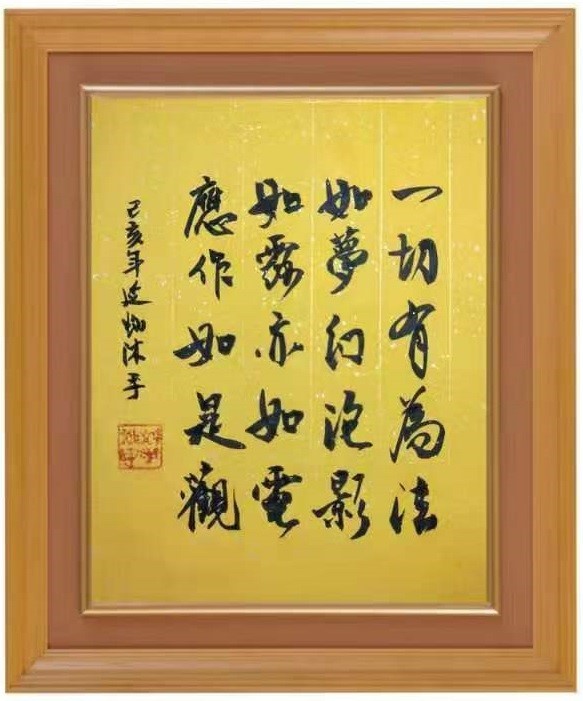 一切有為法
如夢幻泡影
如露亦如電
應作如是觀
己亥年延沐手